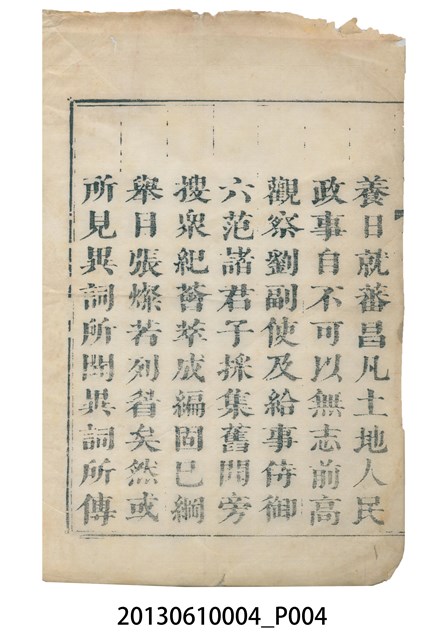 養日就蕃昌凡土地人民
政事自不可以無志前高
觀察劉副使及給事侍御
六范諸君子採集舊聞旁
搜衆紀薈萃成編固已綱
舉目張燦若列眉矣然或
所見異詞所聞異詞所傳
20130610004_P004